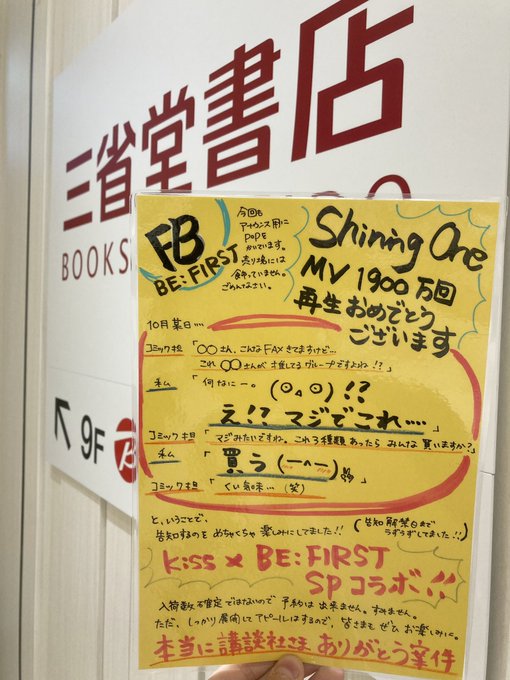 三省堂書店
BOOKS
9F
FB
BE:FIRST
今回も
アナウンス用に
POPを
かいています。
売り場には
飾っていません。
ごめんなさい。
Shining One
MV 1900万回
再生おめでとう
ございます
10月某日…
コミック担 「〇〇さん、こんなFAXきてますけど…
これ〇〇さんが推してるグループですよね!?」
私 「何なにー。(⊙△⊙)!?
え!? マジでこれ….」
コミック担 「マジみたいですね。これ3種類あったらみんな買いますか?」
私 「買う(一へ一)」
コミック担 「くい気味…(笑)
と、いうことで、
告知するのをめちゃくちゃ楽しみにしてました!!
(告知解禁日まで
うずうずしてました!!)
Kiss × BE:FIRST
SPコラボ!!
入荷数が確定ではないので予約は出来ません。すみません。
ただ、しっかり展開してアピールはするので、皆さまもぜひお楽しみに。
本当に講談社さまありがとう案件